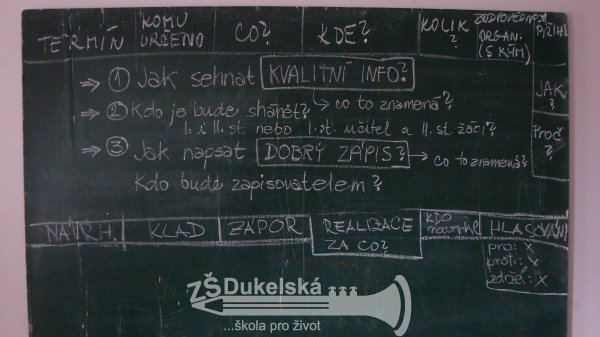 TERMÍN KOMU URČENO CO? KDE? KOLIK? ZODPOVĚDNOST ORGAN. (S KÝM)
→ ① Jak sehnat KVALITNÍ INFO?
JAK?
→ co to znamená?
→ ② Kdo je bude shánět?
I. i II. st. nebo I. st. učitel a II. st. žáci?
Proč?
→ ③ Jak napsat DOBRÝ ZÁPIS? → co to znamená?
Kdo bude zapisovatelem?
NÁVRH. KLAD ZÁPOR REALIZACE ZA CO? KDO HLASOVÁNÍ
pro: x
proti: x
zdržel: x
ZŠDukelská
...škola pro život